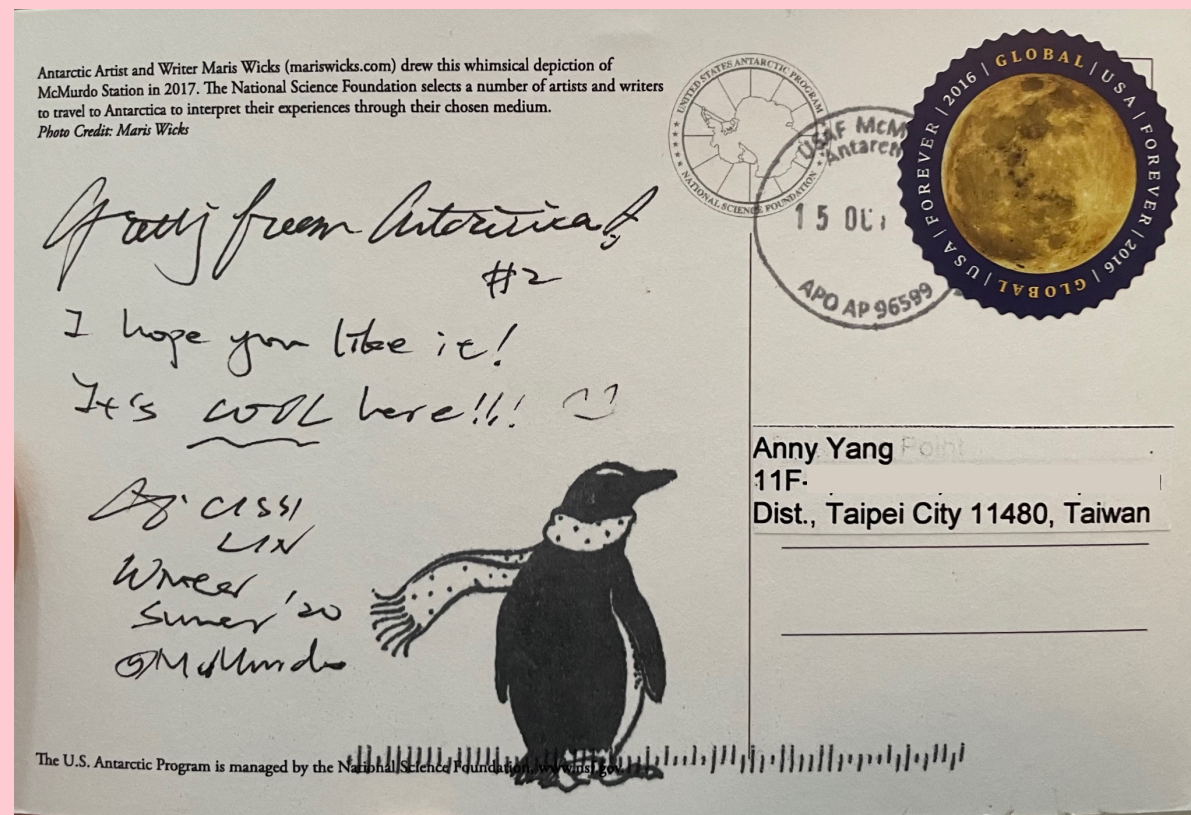 Antarctic Artist and Writer Maris Wicks (mariswicks.com) drew this whimsical depiction of
McMurdo Station in 2017. The National Science Foundation selects a number of artists and writers
to travel to Antarctica to interpret their experiences through their chosen medium.
Photo Credit: Maris Wicks
UNITED STATES ANTARCTIC PROGRAM
NATIONAL SCIENCE FOUNDATION
USAF McM
Antarct
15 OC
APO AP 96599
GLOBAL | USA | FOREVER | 2016 | GLOBAL | USA | FOREVER | 2016 |
from Antarctica!
#2
I hope you like it!
It's COOL here!!!
CISSI
LIN
Winter
Summer '20
@McMurdo
Anny Yang Point
11F-
Dist., Taipei City 11480, Taiwan
The U.S. Antarctic Program is managed by the National Science Foundation, www.nsf.gov.